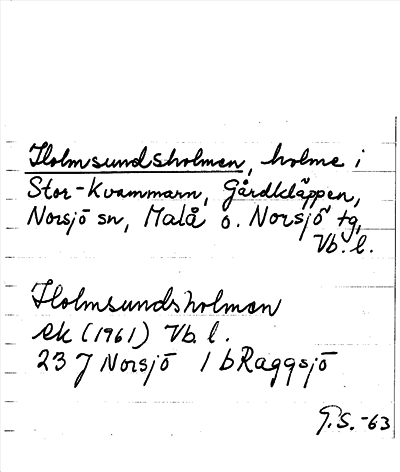 Holmsundsholmen, holme i
Stor-Kvammarn, Gårdkläppen,
Norsjö sn, Malå o. Norsjö tg,
Vb. l.
Holmsundsholmen
ek (1961) Vb. l.
23 J Norsjö 1 b Raggsjö
G.S. -63